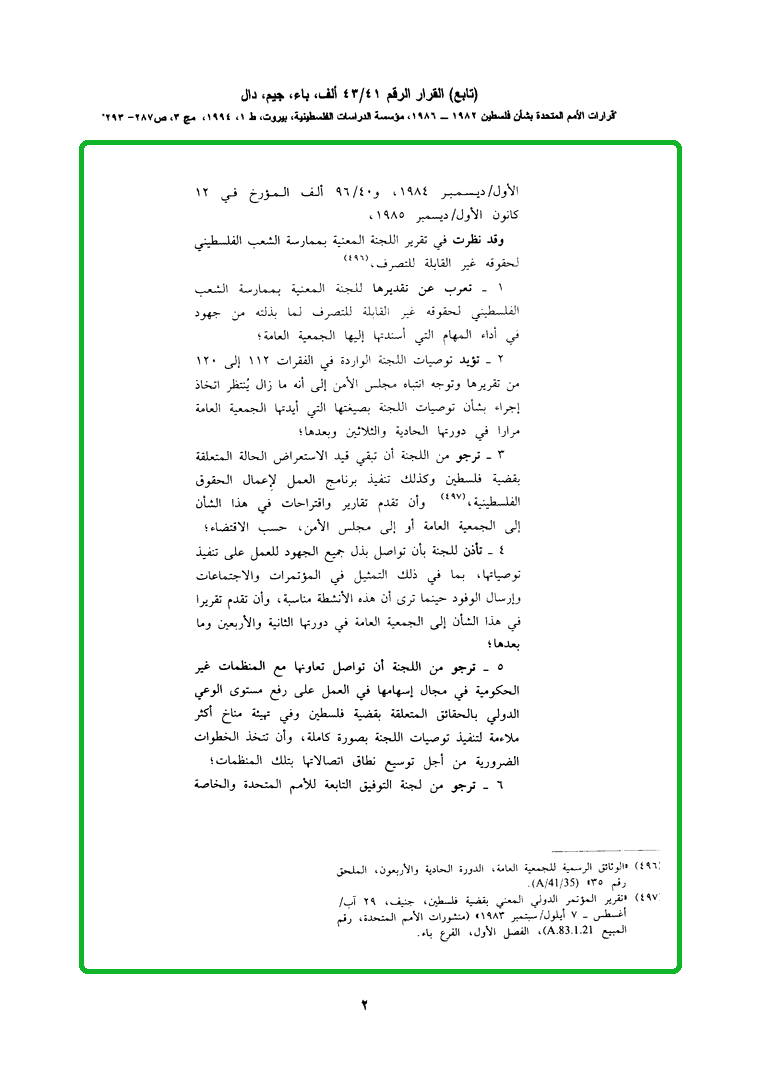 (تابع) القرار الرقم ٤٣/٤١ ألف، باء، جيم، دال
"قرارات الأمم المتحدة بشأن فلسطين ١٩٨٢ ــ ١٩٨٦، مؤسسة الدراسات الفلسطينية، بيروت، ط ١، ١٩٩٤، مج ٣، ص٢٨٧- ٢٩٣"
الأول/ديسمبر ١٩٨٤، و٩٦/٤٠ ألف المؤرخ في ١٢
كانون الأول/ديسمبر ١٩٨٥،
وقد نظرت في تقرير اللجنة المعنية بممارسة الشعب الفلسطيني
لحقوقه غير القابلة للتصرف،(٤٩٦)
١ ـ تعرب عن تقديرها للجنة المعنية بممارسة الشعب
الفلسطيني لحقوقه غير القابلة للتصرف لما بذلته من جهود
في أداء المهام التي أسندتها إليها الجمعية العامة؛
٢ ـ تؤيد توصيات اللجنة الواردة في الفقرات ١١٢ إلى ١٢٠
من تقريرها وتوجه انتباه مجلس الأمن إلى أنه ما زال يُنتظر اتخاذ
إجراء بشأن توصيات اللجنة بصيغتها التي أيدتها الجمعية العامة
مرارا في دورتها الحادية والثلاثين وبعدها؛
٣ ـ ترجو من اللجنة أن تبقي قيد الاستعراض الحالة المتعلقة
بقضية فلسطين وكذلك تنفيذ برنامج العمل لإعمال الحقوق
الفلسطينية،(٤٩٧) وأن تقدم تقارير واقتراحات في هذا الشأن
إلى الجمعية العامة أو إلى مجلس الأمن، حسب الاقتضاء؛
٤ ـ تأذن للجنة بأن تواصل بذل جميع الجهود للعمل على تنفيذ
توصياتها، بما في ذلك التمثيل في المؤتمرات والاجتماعات
وإرسال الوفود حينما ترى أن هذه الأنشطة مناسبة، وأن تقدم تقريرا
في هذا الشأن إلى الجمعية العامة في دورتها الثانية والأربعين وما
بعدها؛
٥ ـ ترجو من اللجنة أن تواصل تعاونها مع المنظمات غير
الحكومية في مجال إسهامها في العمل على رفع مستوى الوعي
الدولي بالحقائق المتعلقة بقضية فلسطين وفي تهيئة مناخ أكثر
ملاءمة لتنفيذ توصيات اللجنة بصورة كاملة، وأن تتخذ الخطوات
الضرورية من أجل توسيع نطاق اتصالاتها بتلك المنظمات؛
٦ ـ ترجو من لجنة التوفيق التابعة للأمم المتحدة والخاصة
(٤٩٦) «الوثائق الرسمية للجمعية العامة، الدورة الحادية والأربعون، الملحق
رقم ٣٥» (A/41/35).
(٤٩٧) «تقرير المؤتمر الدولي المعني بقضية فلسطين، جنيف، ٢٩ آب/
أغسطس ـ ٧ أيلول/سبتمبر ١٩٨٣» (منشورات الأمم المتحدة، رقم
المبيع A.83.1.21)، الفصل الأول، الفرع باء.
٢